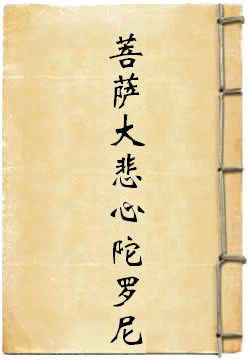 菩萨大悲心陀罗尼